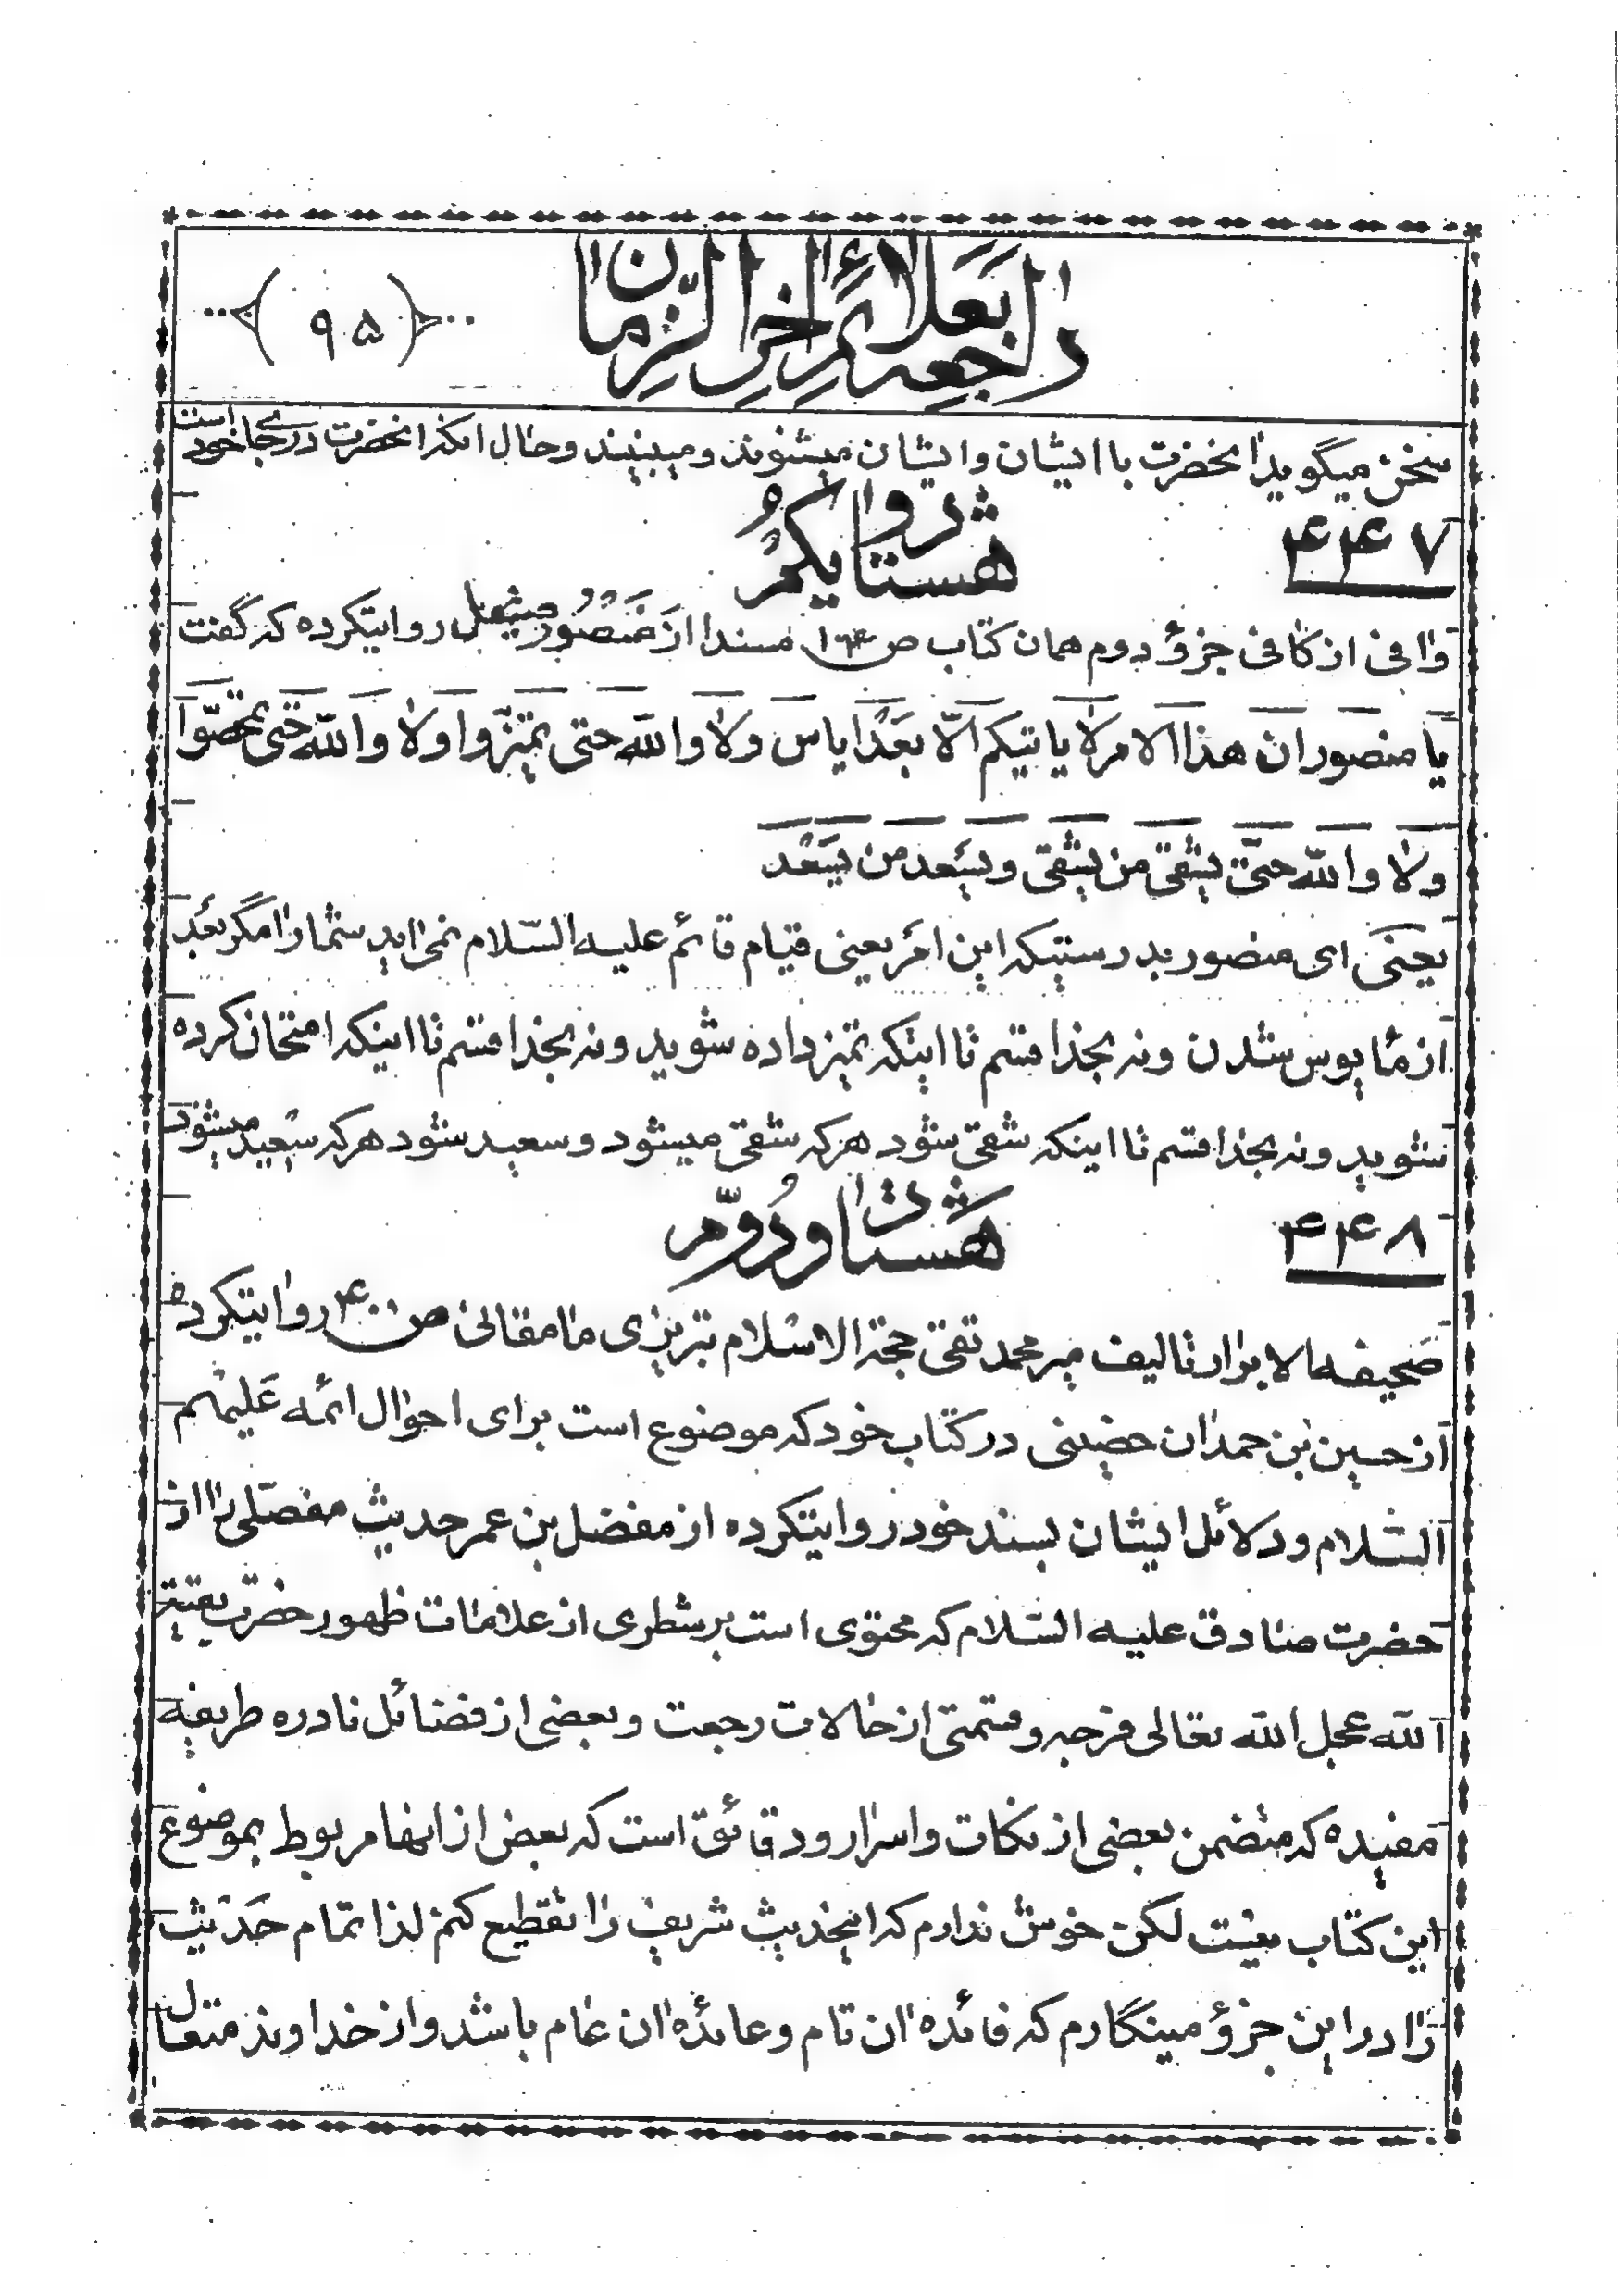 راجعبعلائم اخر الزمان
۹۵
سخن میگوید انحضرت با ایشان و ایشان میشنوند و میبینند و حال انکه انحضرت در جای خود است
۴۴۷
روایت شصت و یکم
وافی از کافی جزؤ دوم همان کتاب ص ۱۶۴ مسندا از منصور صیقل روایتکرده که گفت
یا منصور ان هذا الامر لا یاتیکم الّا بعد ایاس ولا والله حتی تمیّزوا ولا والله حتی تمحّصوا
ولا والله حتّی یشقی من یشقی ویسعد من یسعد
یعنی ای منصور بدرستیکه این امر یعنی قیام قائم علیه السّلام نمیاید شما را مگر بعد
از مایوس شدن ونه بخدا قسم تا اینکه تمیز داده شوید ونه بخدا قسم تا اینکه امتحان کرده
شوید ونه بخدا قسم تا اینکه شقی شود هرکه شقی میشود و سعید شود هرکه سعید میشود
۴۴۸
شصت و دوّم
صحیفه الابرار تالیف میر محمد تقی حجة الاسلام تبریزی مامقالی ص ۴۰۰ روایتکرده
از حسین بن حمدان حضینی در کتاب خود که موضوع است برای احوال ائمه علیهم
السّلام و دلائل ایشان بسند خود روایتکرده از مفضل بن عمر حدیث مفصّلی را از
حضرت صادق علیه السّلام که محتوی است بر شطری از علامات ظهور حضرت بقیة
الله عجل الله تعالی فرجه و قسمتی از حالات رجعت و بعضی از فضائل نادره طریفه
مفیده که متضمن بعضی از نکات و اسرار و دقائق است که بعض از انها مربوط بموضوع
این کتاب نیست لکن خوش ندارم که اینحدیث شریف را تقطیع کنم لذا تمام حدیث
را در این جزؤ مینگارم که فائده ان تام و عائده ان عام باشد و از خداوند متعال